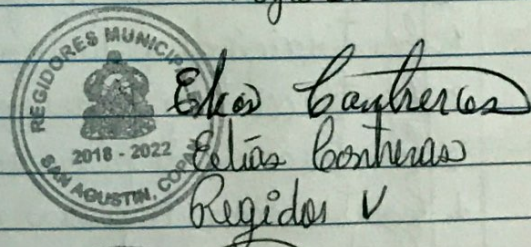 REGIDORES MUNICIPALES
2018 - 2022
SAN AGUSTIN, COPAN
Elias Contreras
Elías Contreras
Regidor V